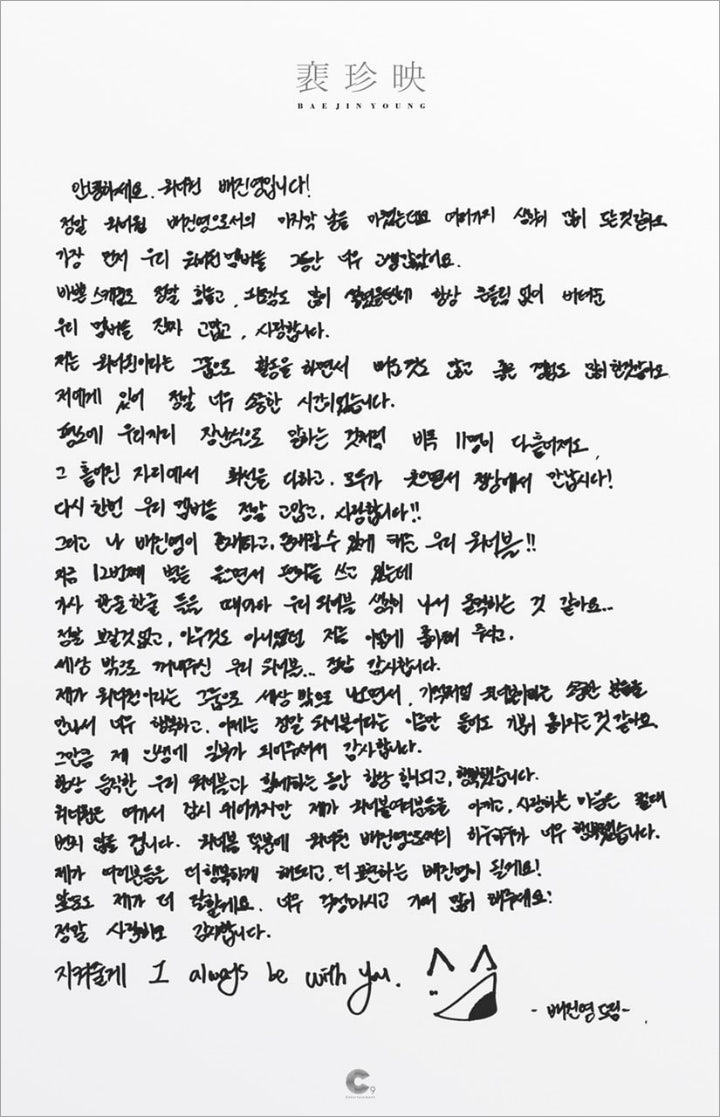 裵珍映
BAE JIN YOUNG
안녕하세요. 워너원 배진영입니다!
정말 워너원 배진영으로서의 마지막 날을 마쳤는데요 여러가지 생각이 많이 드는것같아요
가장 먼저 우리 워너원 멤버들 그동안 너무 고생많았어요.
바쁜 스케줄도 정말 힘들고, 많이 있었을텐데 항상 흔들림 없이 버텨준
우리 멤버들 진짜 고맙고, 사랑합니다.
저는 워너원이라는 그룹으로 활동을 하면서 배운것도 많고 좋은 경험도 많이한것같아요
저에게 있어 정말 너무 소중한 시간이었습니다.
평소에 우리끼리 장난식으로 말하는 것처럼 비록 11명이 다 흩어져도,
그 흩어진 자리에서 최선을 다하고, 모두가 웃으면서 정상에서 만납시다!
다시 한번 우리 멤버들 정말 고맙고, 사랑합니다!!
그리고 나 배진영이 존재하고, 존재할 수 있게 해준 우리 워너블!!
지금 12번째 별을 들으면서 편지를 쓰고 있는데
가사 한줄 한줄 들을 때마다 우리 워너블 생각이 나서 울컥하는 것 같아요...
정말 보잘것없고, 아무것도 아니었던 저를 이렇게 좋아해 주시고,
세상 밖으로 꺼내주신 우리 워너블... 정말 감사합니다.
제가 워너원이라는 그룹으로 세상 밖으로 나오면서, 기적처럼 워너블이라는 소중한 분들을
만나서 너무 행복하고, 이제는 정말 워너블이라는 이름만 들어도 기분이 좋아지는 것 같아요
그만큼 제 인생에 일부가 되어주셔서 감사합니다.
항상 우리 워너블과 함께하는 동안 항상 힘나고, 행복했습니다.
워너원은 여기서 잠시 쉬어가지만 제가 워너블여러분들을 아끼고, 사랑하는 마음은 절대
변치 않을 겁니다. 워너블 덕분에 워너원 배진영으로서의 하루하루가 너무 행복했습니다.
제가 여러분들을 더 행복하게 해드리고, 더 표현하는 배진영이 될게요!
앞으로도 제가 더 잘할게요. 너무 걱정마시고 기대 많이 해주세요!
정말 사랑하고 감사합니다.
지켜줄게 I always be with you.
- 배진영 드림 -
C9
Entertainment